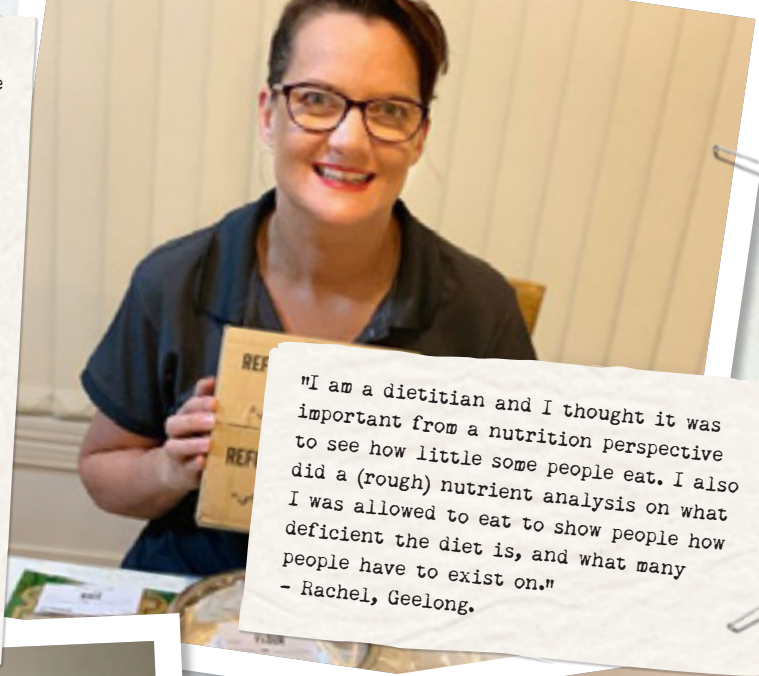 "I am a dietitian and I thought it was
important from a nutrition perspective
to see how little some people eat. I also
did a (rough) nutrient analysis on what
I was allowed to eat to show people how
deficient the diet is, and what many
people have to exist on."
– Rachel, Geelong.